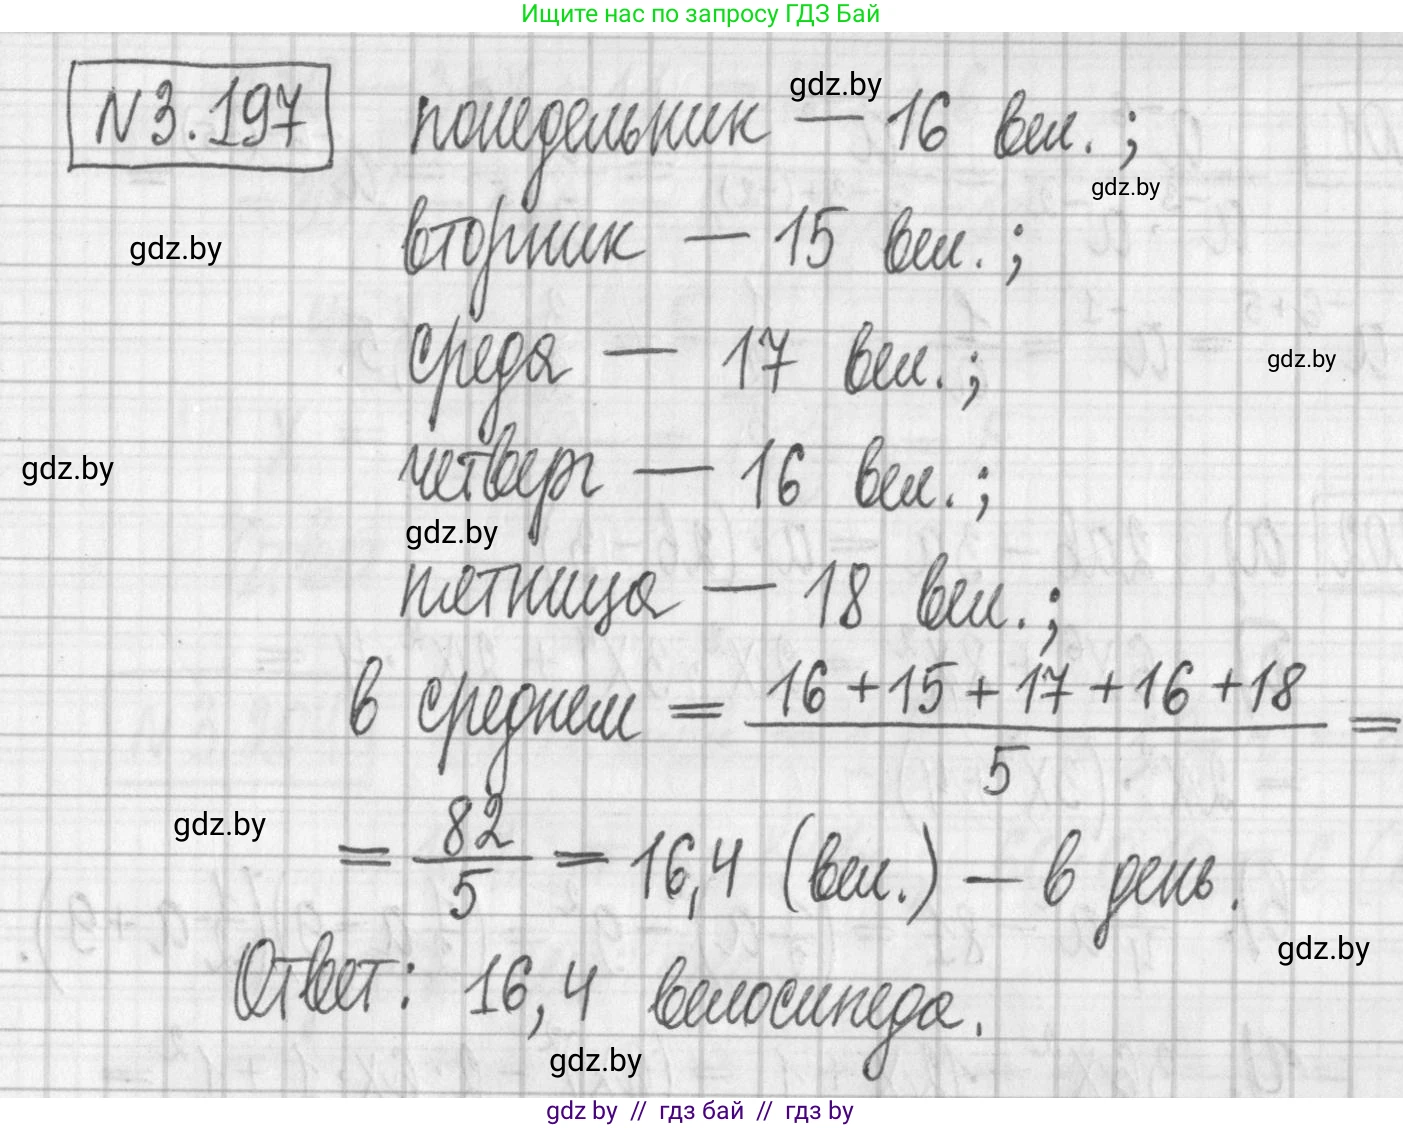 Ищите нас по запросу ГДЗ Бай
gdz.by
N3.197 понедельник — 16 вел. ;
gdz.by
вторник — 15 вел. ;
gdz.by
среда — 17 вел. ;
gdz.by
четверг — 16 вел. ;
gdz.by
gdz.by
пятница — 18 вел. ;
в среднем = \frac{16 + 15 + 17 + 16 + 18}{5} =
gdz.by
= \frac{82}{5} = 16,4 (вел.) — в день.
gdz.by
Ответ: 16,4 велосипеда.
gdz.by
gdz by // гдз бай // гдз by